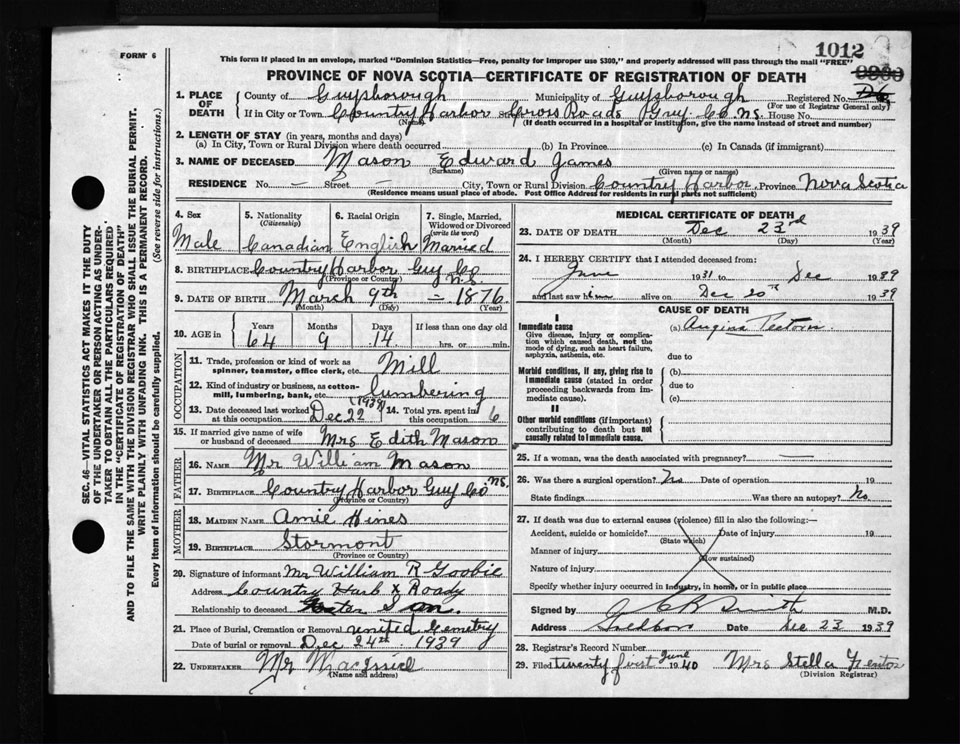 FORM 6
1012
This form if placed in an envelope, marked "Dominion Statistics—Free, penalty for improper use $300," and properly addressed will pass through the mail "FREE"
PROVINCE OF NOVA SCOTIA—CERTIFICATE OF REGISTRATION OF DEATH
SEC. 46—VITAL STATISTICS ACT MAKES IT THE DUTY
OF THE UNDERTAKER OR PERSON ACTING AS UNDER-
TAKER TO OBTAIN ALL THE PARTICULARS REQUIRED
IN THE "CERTIFICATE OF REGISTRATION OF DEATH"
AND TO FILE THE SAME WITH THE DIVISION REGISTRAR WHO SHALL ISSUE THE BURIAL PERMIT.
WRITE PLAINLY WITH UNFADING INK. THIS IS A PERMANENT RECORD.
Every item of Information should be carefully supplied. (See reverse side for instructions.)
1. PLACE OF DEATH
County of Guysborough Municipality of Guysborough Registered No.
(For use of Registrar General only)
If in City or Town Country Harbor Cross Roads Guy Co N.S. House No.
(Name)
(If death occurred in a hospital or institution, give the name instead of street and number)
2. LENGTH OF STAY (in years, months and days)
(a) In City, Town or Rural Division where death occurred (b) In Province (c) In Canada (if immigrant)
3. NAME OF DECEASED Mason Edward James
(Surname) (Given name or names)
RESIDENCE No. — Street — City, Town or Rural Division Country Harbor Province Nova Scotia
(Residence means usual place of abode. Post Office Address for residents in rural parts not sufficient)
4. Sex 5. Nationality (Citizenship) 6. Racial Origin 7. Single, Married, Widowed or Divorced (write the word)
Male Canadian English Married
8. BIRTHPLACE Country Harbor Guy Co N.S.
(Province or Country)
9. DATE OF BIRTH March 9th - 1876
(Month) (Day) (Year)
10. AGE in Years Months Days If less than one day old
64 9 14 hrs. or min.
OCCUPATION
11. Trade, profession or kind of work as spinner, teamster, office clerk, etc. Mill
12. Kind of industry or business, as cotton-mill, lumbering, bank, etc. Lumbering
13. Date deceased last worked at this occupation Dec 22 (1939) 14. Total yrs. spent in this occupation 6
15. If married give name of wife or husband of deceased Mrs Edith Mason
FATHER
16. NAME Mr William Mason
17. BIRTHPLACE Country Harbor Guy Co N.S.
(Province or Country)
MOTHER
18. MAIDEN NAME Amie Hines
19. BIRTHPLACE Stormont
(Province or Country)
20. Signature of informant Mr William R Goobie
Address Country Harb X Roads
Relationship to deceased Son.
21. Place of Burial, Cremation or Removal United Cemetry
Date of burial or removal Dec 24th 1939
22. UNDERTAKER Mr
(Name and address)
MEDICAL CERTIFICATE OF DEATH
23. DATE OF DEATH Dec 23rd 1939
(Month) (Day) (Year)
24. I HEREBY CERTIFY that I attended deceased from:
June 1931 to Dec 1939
and last saw him alive on Dec 20th 1939
CAUSE OF DEATH
I
Immediate cause (a) Angina Pectoris
Give disease, injury or complication which caused death, not the mode of dying, such as heart failure, asphyxia, asthenia, etc.
due to
Morbid conditions, if any, giving rise to immediate cause (stated in order proceeding backwards from immediate cause).
(b)
due to
(c)
II
Other morbid conditions (if important) contributing to death but not causally related to immediate cause.
25. If a woman, was the death associated with pregnancy? —
26. Was there a surgical operation? No Date of operation 19
State findings Was there an autopsy? No
27. If death was due to external causes (violence) fill in also the following:—
Accident, suicide or homicide? Date of injury 19
(State which)
Manner of injury
(How sustained)
Nature of injury
Specify whether injury occurred in industry, in home, or in public place
Signed by Smith M.D.
Address Goldboro Date Dec 23 1939
28. Registrar's Record Number
29. Filed twenty first June 1940 Mrs Stella Fenton
(Division Registrar)